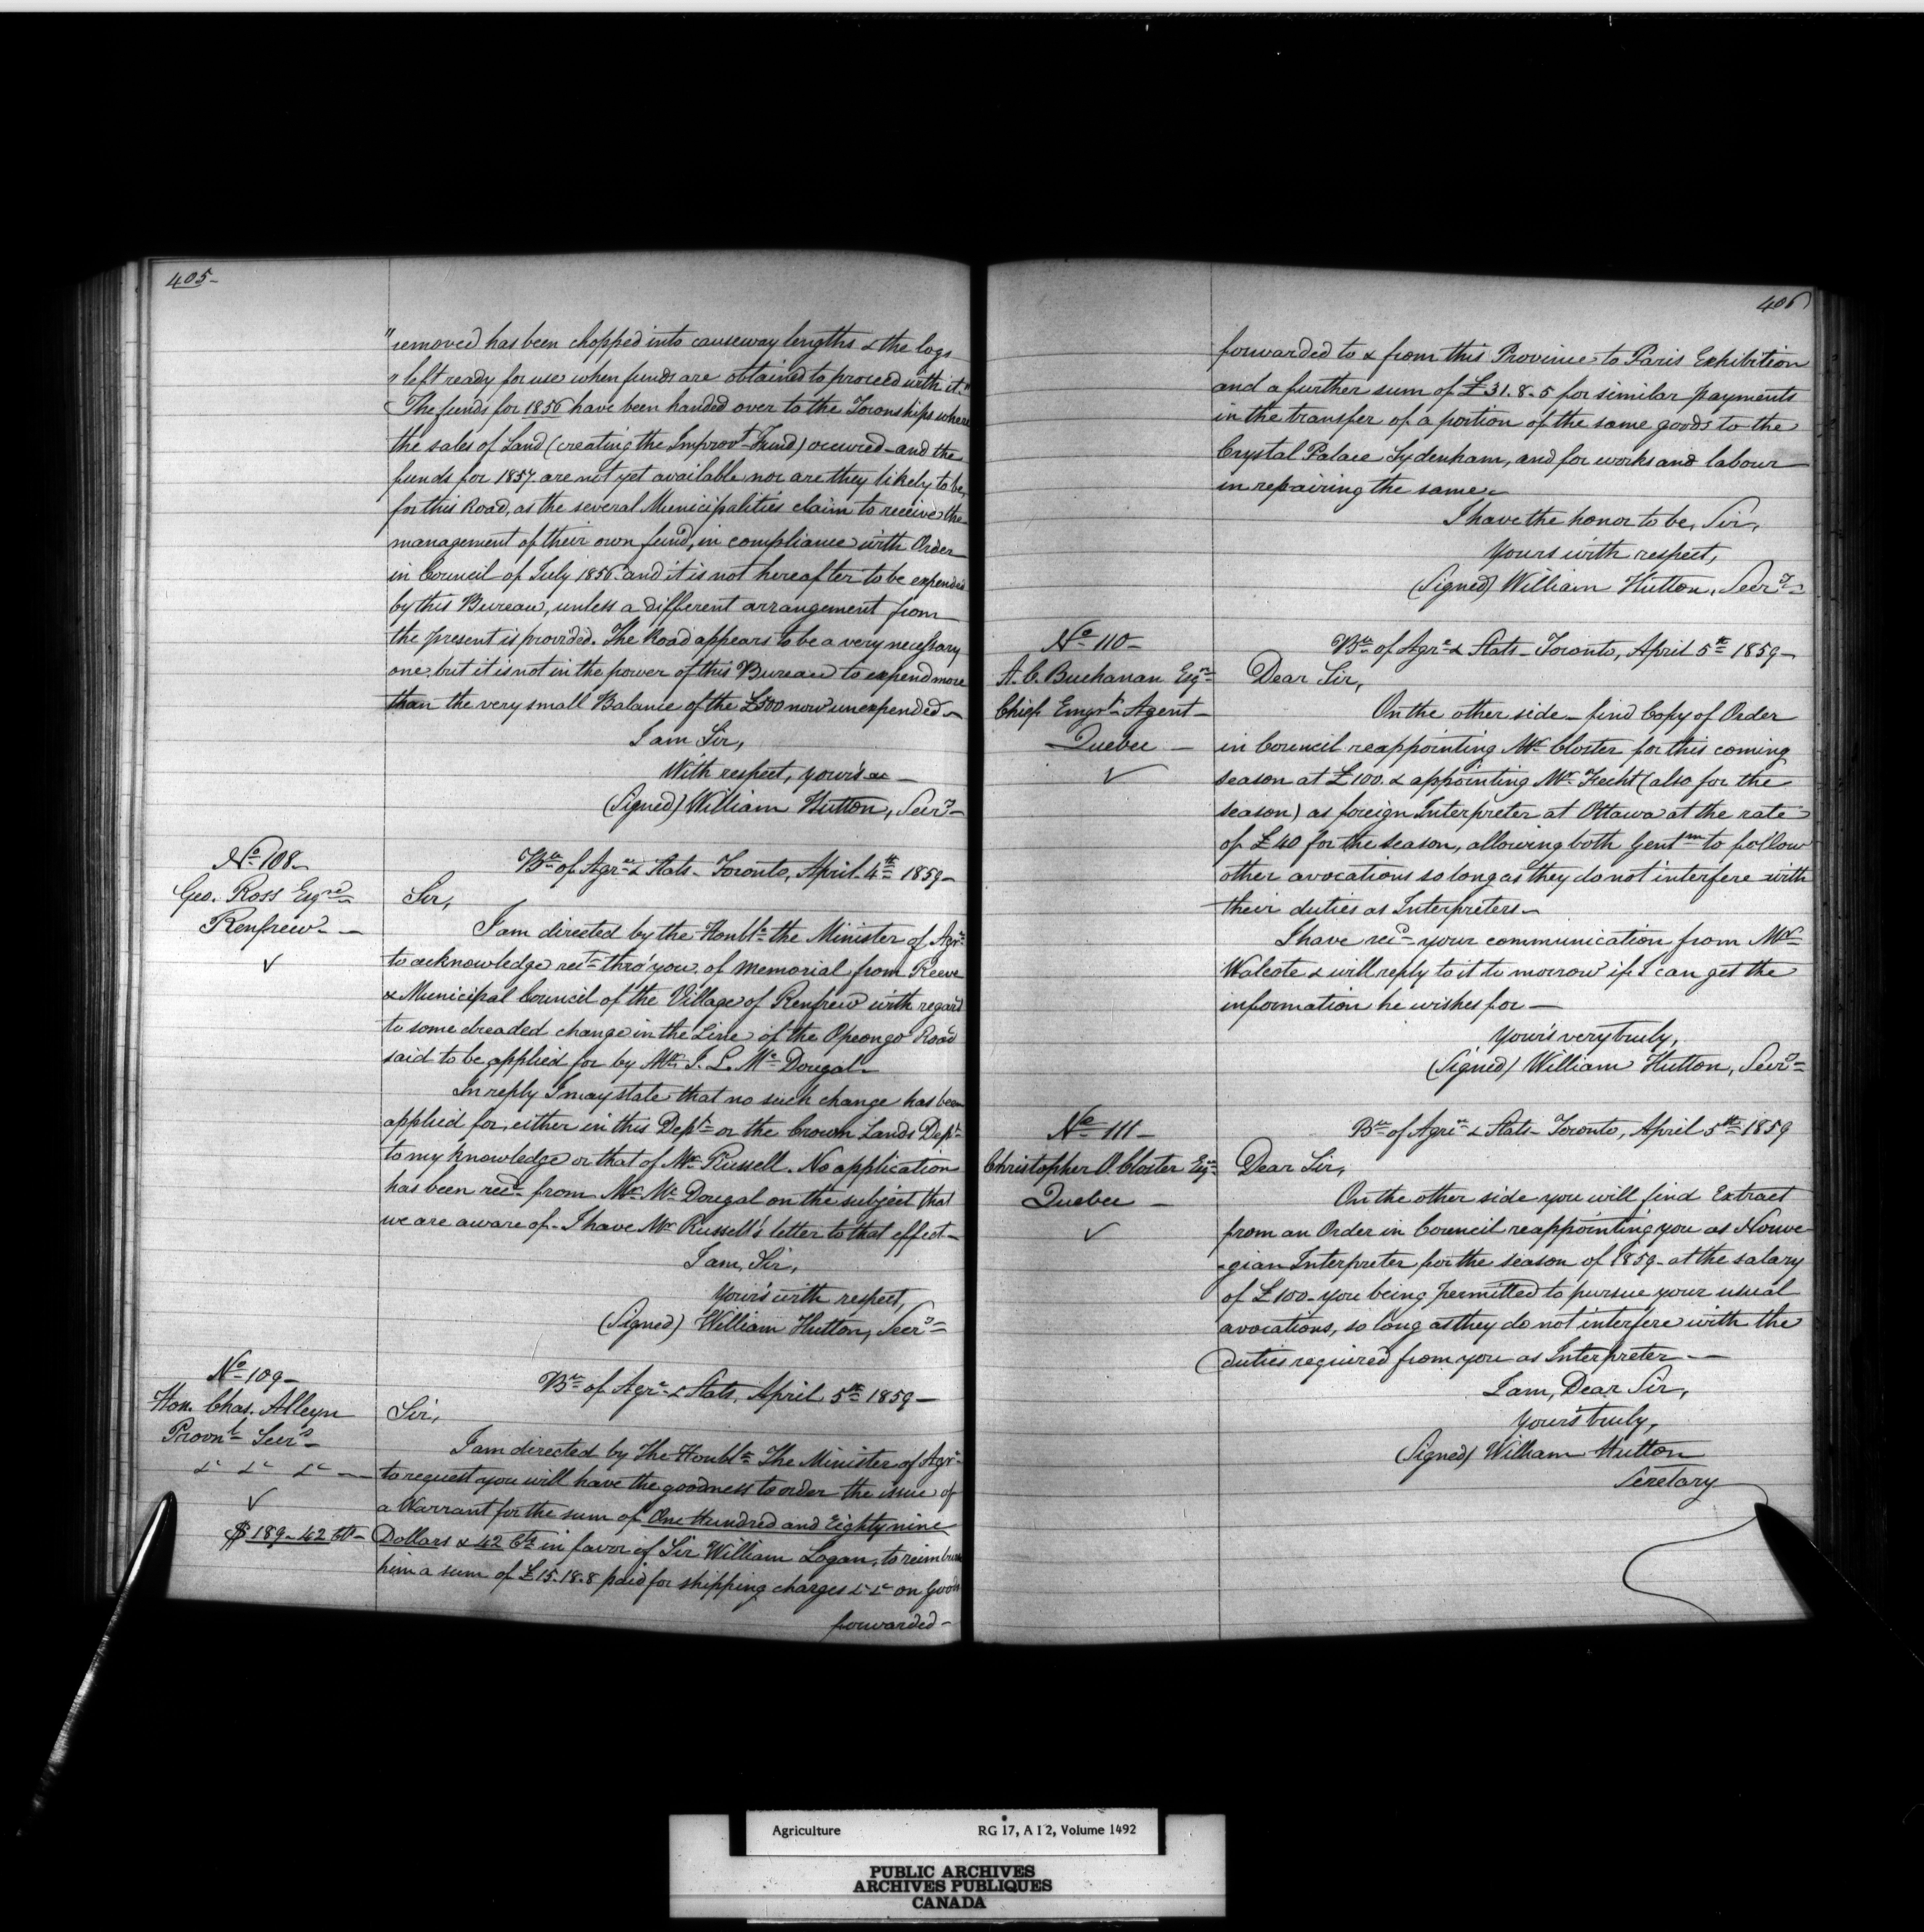 405-
"removed has been chopped into causeway lengths & the logs
"left ready for use when funds are obtained to proceed with it."
The funds for 1856 have been handed over to the Townships where
the sales of Land (creating the Improvt Fund) occurred - and the
funds for 1857 are not yet available nor are they likely to be,
for this Road, as the several Municipalities claim to receive the
management of their own fund, in compliance with Order
in Council of July 1856 and it is not hereafter to be expended
by this Bureau, unless a different arrangement from
the present is provided. The Road appears to be a very necessary
one, but it is not in the power of this Bureau to expend more
than the very small Balance of the £500 now unexpended -
I am Sir,
With respect, yours &c -
(Signed) William Hutton, Secry -
No 108 -
Geo. Ross Esqre
Renfrew - -
Bu of Agre & Stats - Toronto, April 4th 1859 -
Sir,
I am directed by the Honble the Minister of Agre
to acknowledge rect thro' you of Memorial from Reeve
& Municipal Council of the Village of Renfrew with regard
to some dreaded change in the Line of the Opeongo Road
said to be applied for by Mr J. L. Mc Dougal -
In reply I may state that no such change has been
applied for, either in this Dept or the Crown Lands Dept
to my knowledge or that of Mr Russell. No application
has been recd from Mr Mc Dougal on the subject that
we are aware of - I have Mr Russell's letter to that effect -
I am, Sir,
Your's with respect,
(Signed) William Hutton, Secry
No 109 -
Hon. Chas. Alleyn
Provnl Secry
&c &c &c -
$189 - 42 Cts -
Bu of Agre & Stats, April 5th 1859 -
Sir,
I am directed by The Honble The Minister of Agre
to request you will have the goodness to order the issue of
a Warrant for the sum of One Hundred and Eighty nine
Dollars & 42 Cts in favor of Sir William Logan, to reimburse
him a sum of £15.18.8 paid for shipping charges &c &c on Goods
forwarded -
406
forwarded to & from this Province to Paris Exhibition
and a further sum of £31.8.5 for similar payments
in the transfer of a portion of the same goods to the
Crystal Palace Sydenham, and for works and labour
in repairing the same -
I have the honor to be, Sir,
Yours with respect,
(Signed) William Hutton, Secry -
No 110 -
A. C. Buchanan Esqre
Chief Emigrn Agent -
Quebec -
Bu of Agre & Stats - Toronto, April 5th 1859 -
Dear Sir,
On the other side - find Copy of Order
in Council reappointing Mr Closter for this coming
season at £100. & appointing Mr Hecht (also for the
season) as foreign Interpreter at Ottawa at the rate
of £40 for the season, allowing both Gentmn to follow
other avocations so long as they do not interfere with
their duties as Interpreters -
I have recd your communication from Mr
Walcote & will reply to it to morrow if I can get the
information he wishes for -
Your's very truly,
(Signed) William Hutton, Secry
No 111 -
Christopher O. Closter Esqre
Quebec -
Bu of Agre & Stats - Toronto, April 5th 1859
Dear Sir,
On the other side you will find Extract
from an Order in Council reappointing you as Norwe
-gian Interpreter for the season of 1859 - at the salary
of £100 - you being permitted to pursue your usual
avocations, so long as they do not interfere with the
duties required from you as Interpreter - -
I am, Dear Sir,
Your's truly,
(Signed) William Hutton
Secretary
Agriculture RG 17, A I 2, Volume 1492
PUBLIC ARCHIVES
ARCHIVES PUBLIQUES
CANADA